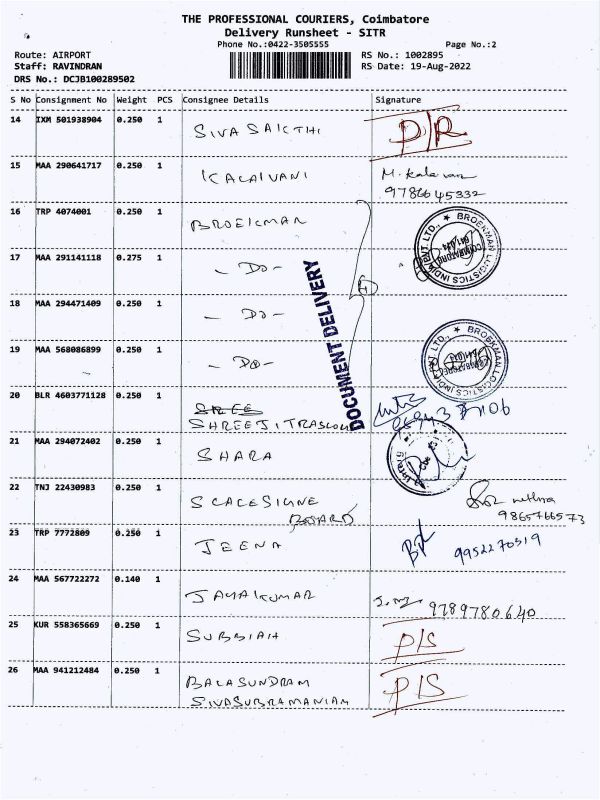 THE PROFESSIONAL COURIERS, Coimbatore
Delivery Runsheet - SITR
Phone No.:0422-3505555 Page No.:2
Route: AIRPORT RS No.: 1002895
Staff: RAVINDRAN RS Date: 19-Aug-2022
DRS No.: DCJB100289502
S No Consignment No Weight PCS Consignee Details Signature
14 IXM 501938904 0.250 1 SIVA SAKTHI P/R
15 MAA 290641717 0.250 1 KALAIVANI M. Kalaivani
9786645332
16 TRP 4074001 0.250 1 BROEKMAN
17 MAA 291141118 0.275 1 - Do -
18 MAA 294471409 0.250 1 - Do -
19 MAA 568086899 0.250 1 - Do -
4
DOCUMENT DELIVERY
BROEKMAN LOGISTICS INDIA PVT. LTD.,
COIMBATORE
641 014
BROEKMAN LOGISTICS INDIA PVT. LTD.,
COIMBATORE
20 BLR 4603771128 0.250 1 SREE
SHREEJI TRASLOU
21 MAA 294072402 0.250 1 SHARA
22 TNJ 22430983 0.250 1 SCALESIGNE
BOARD
9865766573
23 TRP 7772809 0.250 1 JEENA 9952270519
24 MAA 567722272 0.140 1 JAYAKUMAR 9789780640
25 KUR 558365669 0.250 1 SUBBIAH P/S
26 MAA 941212484 0.250 1 BALASUNDRAM P/S
SIVASUBRAMANIAM